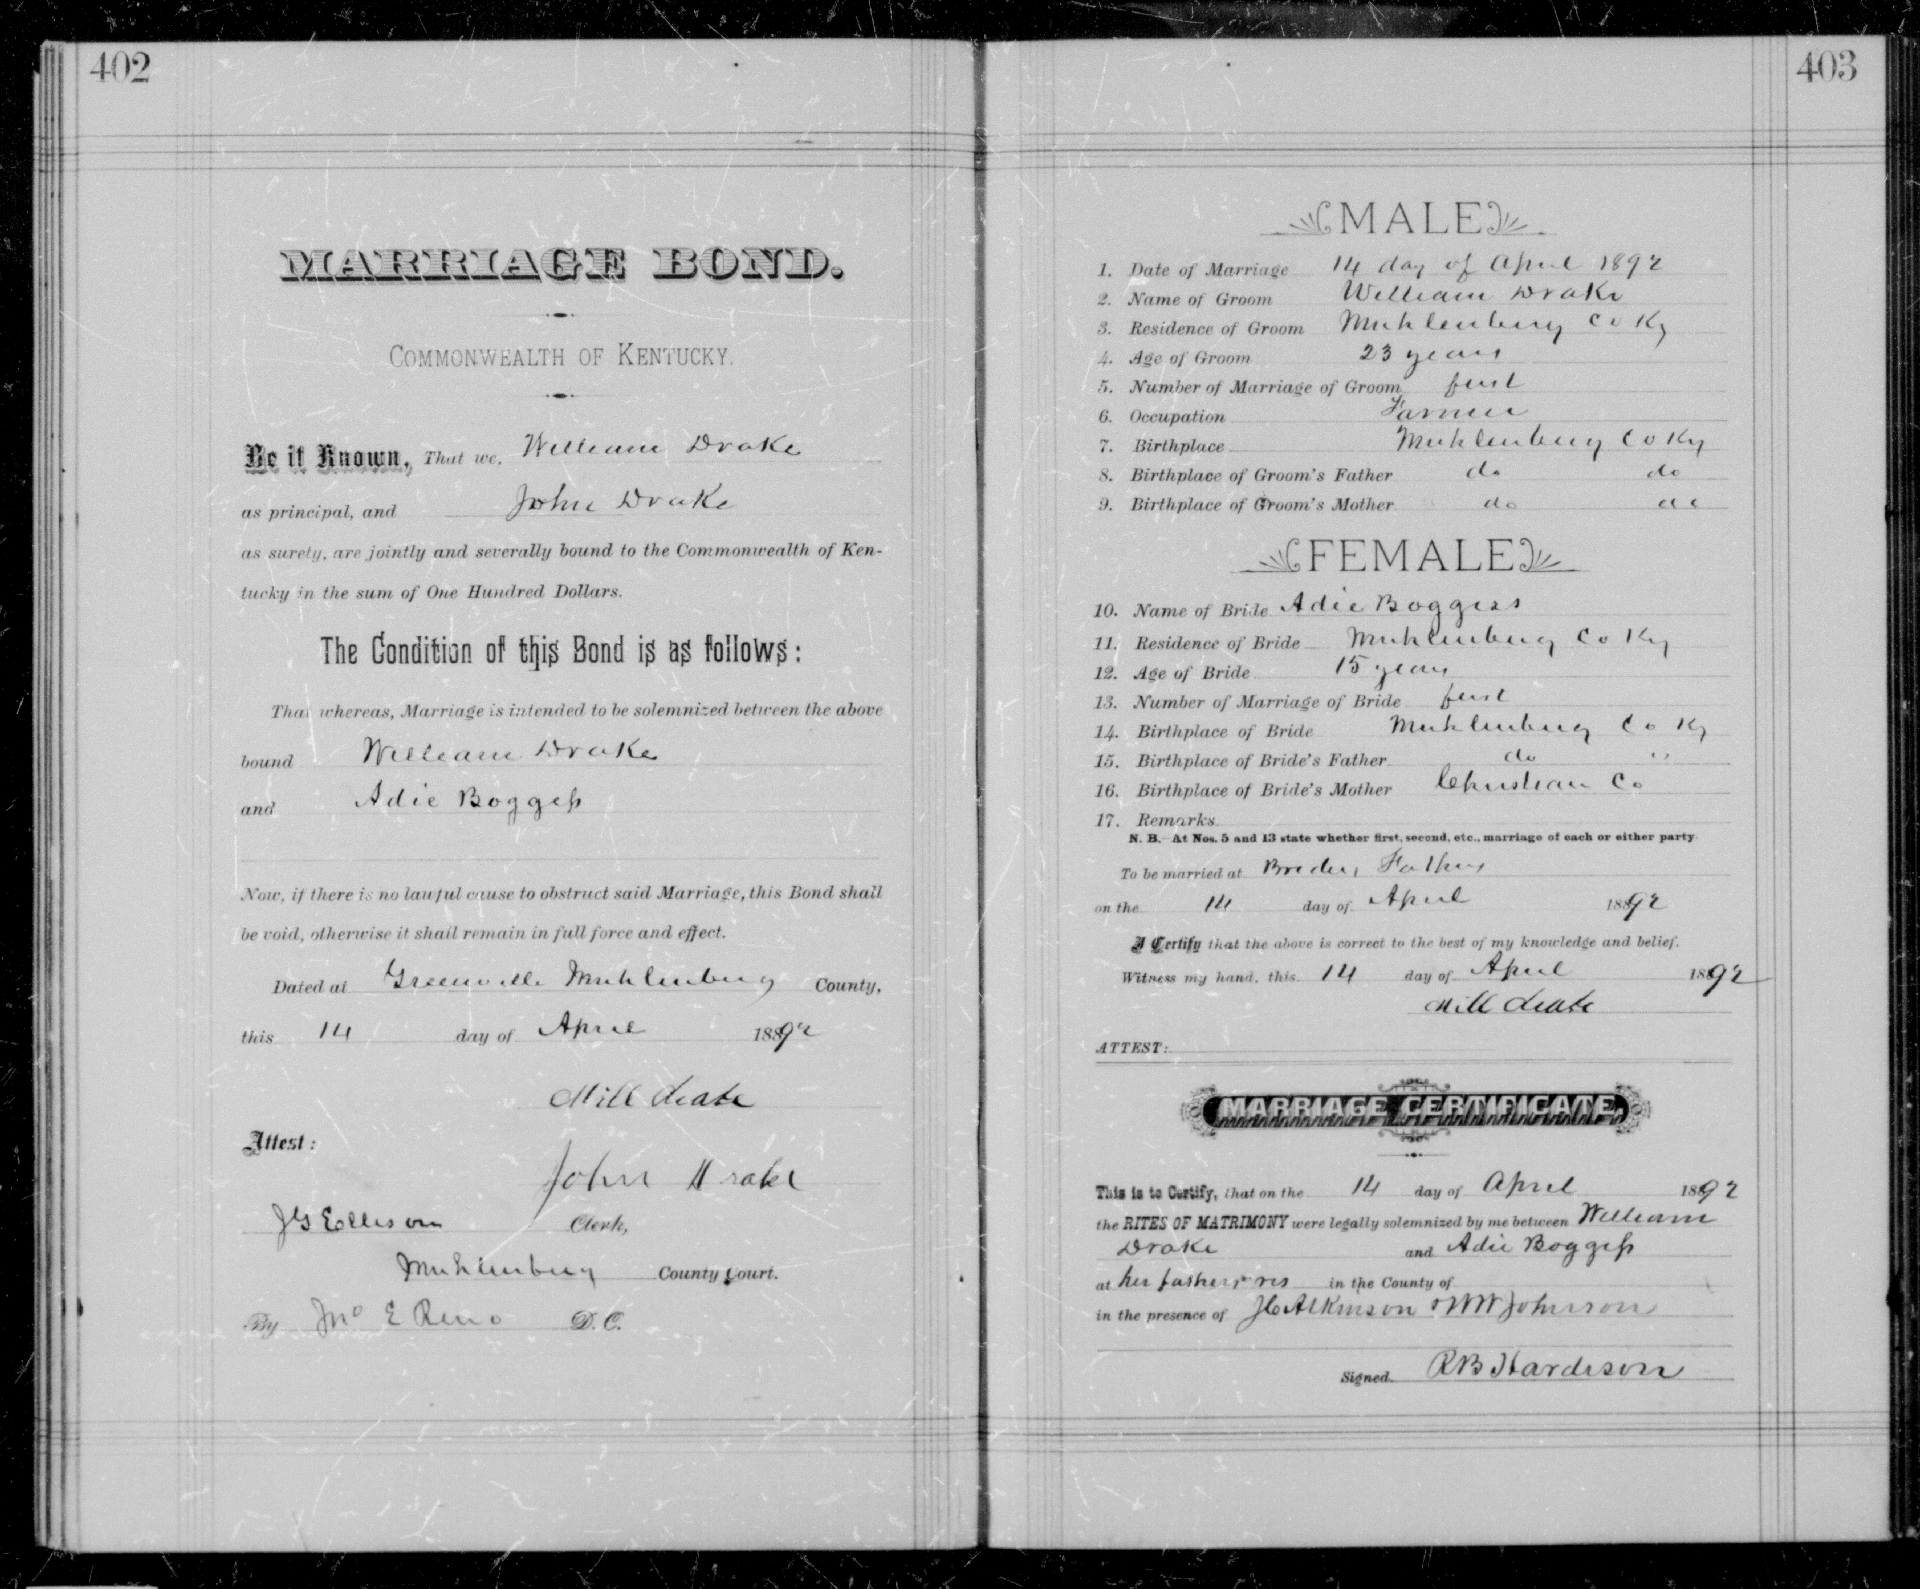 402
MARRIAGE BOND.
COMMONWEALTH OF KENTUCKY.
Be it Known, That we, William Drake
as principal, and John Drake
as surety, are jointly and severally bound to the Commonwealth of Ken-
tucky in the sum of One Hundred Dollars.
The Condition of this Bond is as follows:
That whereas, Marriage is intended to be solemnized between the above
bound William Drake
and Adie Boggess
Now, if there is no lawful cause to obstruct said Marriage, this Bond shall
be void, otherwise it shall remain in full force and effect.
Dated at Greenville Muhlenberg County,
this 14 day of April 1892
Will
Attest:
John Drake
JG Ellison Clerk,
Muhlenberg County Court.
By Jno E Reno D. C.
403
MALE
1. Date of Marriage 14 day of April 1892
2. Name of Groom William Drake
3. Residence of Groom Muhlenberg Co Ky
4. Age of Groom 23 years
5. Number of Marriage of Groom first
6. Occupation Farmer
7. Birthplace Muhlenberg Co Ky
8. Birthplace of Groom's Father do do
9. Birthplace of Groom's Mother do do
FEMALE
10. Name of Bride Adie Boggess
11. Residence of Bride Muhlenberg Co Ky
12. Age of Bride 15 years
13. Number of Marriage of Bride first
14. Birthplace of Bride Muhlenberg Co Ky
15. Birthplace of Bride's Father do "
16. Birthplace of Bride's Mother Christian Co
17. Remarks
N. B.—At Nos. 5 and 13 state whether first, second, etc., marriage of each or either party.
To be married at Brides Fathers
on the 14 day of April 1892
I Certify that the above is correct to the best of my knowledge and belief.
Witness my hand, this 14 day of April 1892
Will
ATTEST:
MARRIAGE CERTIFICATE.
This is to Certify, that on the 14 day of April 1892
the RITES OF MATRIMONY were legally solemnized by me between William
Drake and Adie Boggess
at her fathers res in the County of
in the presence of JC Atkinson & WW Johnson
Signed RB Hardison